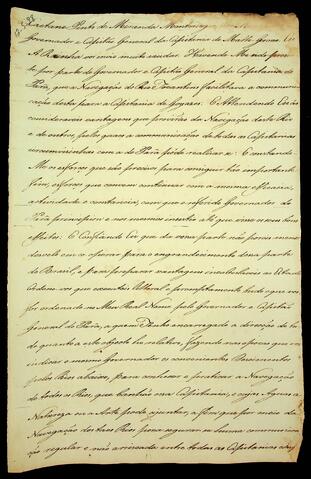 Caetano Pinto de Miranda Montenegro
Governador e Capitão General da Capitania de Matto Grosso. Eu
A Rainha vos envio muito saudar. Havendo Me sido presen-
te por parte do Governador e Capitão General da Capitania do
Pará, que a Navegação do Rio Tocantins facilitava a communi-
cação desta para a Capitania de Goyazes. E Attendendo Eu ás
consideraveis vantagens que provirão da Navegação deste Rio
e de outros, pelos quaes a communicação de todas as Capitanias
circumvizinhas com a do Pará póde realizar-se: E constando-
Me os esforços que são precisos para conseguir tão importante
fim, esforços que convem continuar com a mesma efficacia,
actividade e constancia, com que o referido Governador do
Pará principiou e nos mesmos insta até que vio os seus bons
effeitos: E Confiando Eu que da vossa parte não sereis menos
desvelado em cooperar para o engrandecimento dessa parte
do Brazil, e para preparar vantagens incalculaveis ao Estado:
Ordeno vos que executeis litteral e promptamente tudo o que vos
for ordenado no Meu Real Nome pelo Governador e Capitão
General do Pará, a quem Tenho encarregado a direcção de tu-
do quanto a este objecto he relativo, fazendo nas epocas que in-
dicar o mesmo Governador os convenientes Destacamentos
pelos Rios abaixo, para conhecer e praticar a Navegação
de todos os Rios, que banhão essa Capitania, e cujas Agoas a
Natureza ou a Arte possa ajuntar, a fim que por meio da
Navegação dos taes Rios possa seguir-se huma communica-
ção regular e não arriscada entre todas as Capitanias do